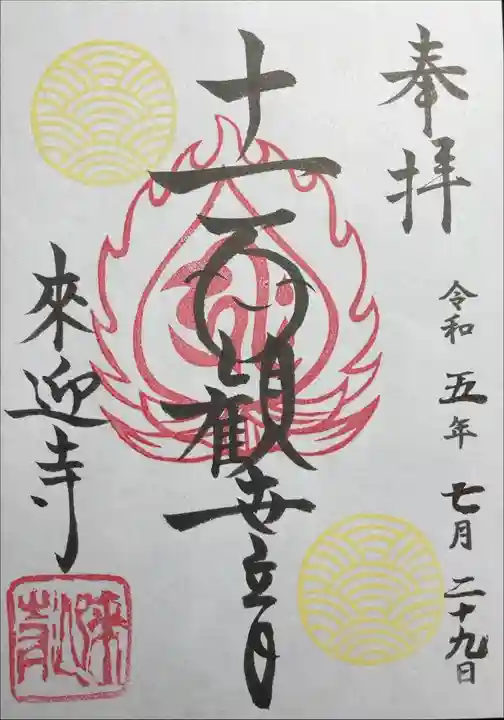 奉拝
令和五年七月二十九日
十一面観世音
來迎寺
來迎寺